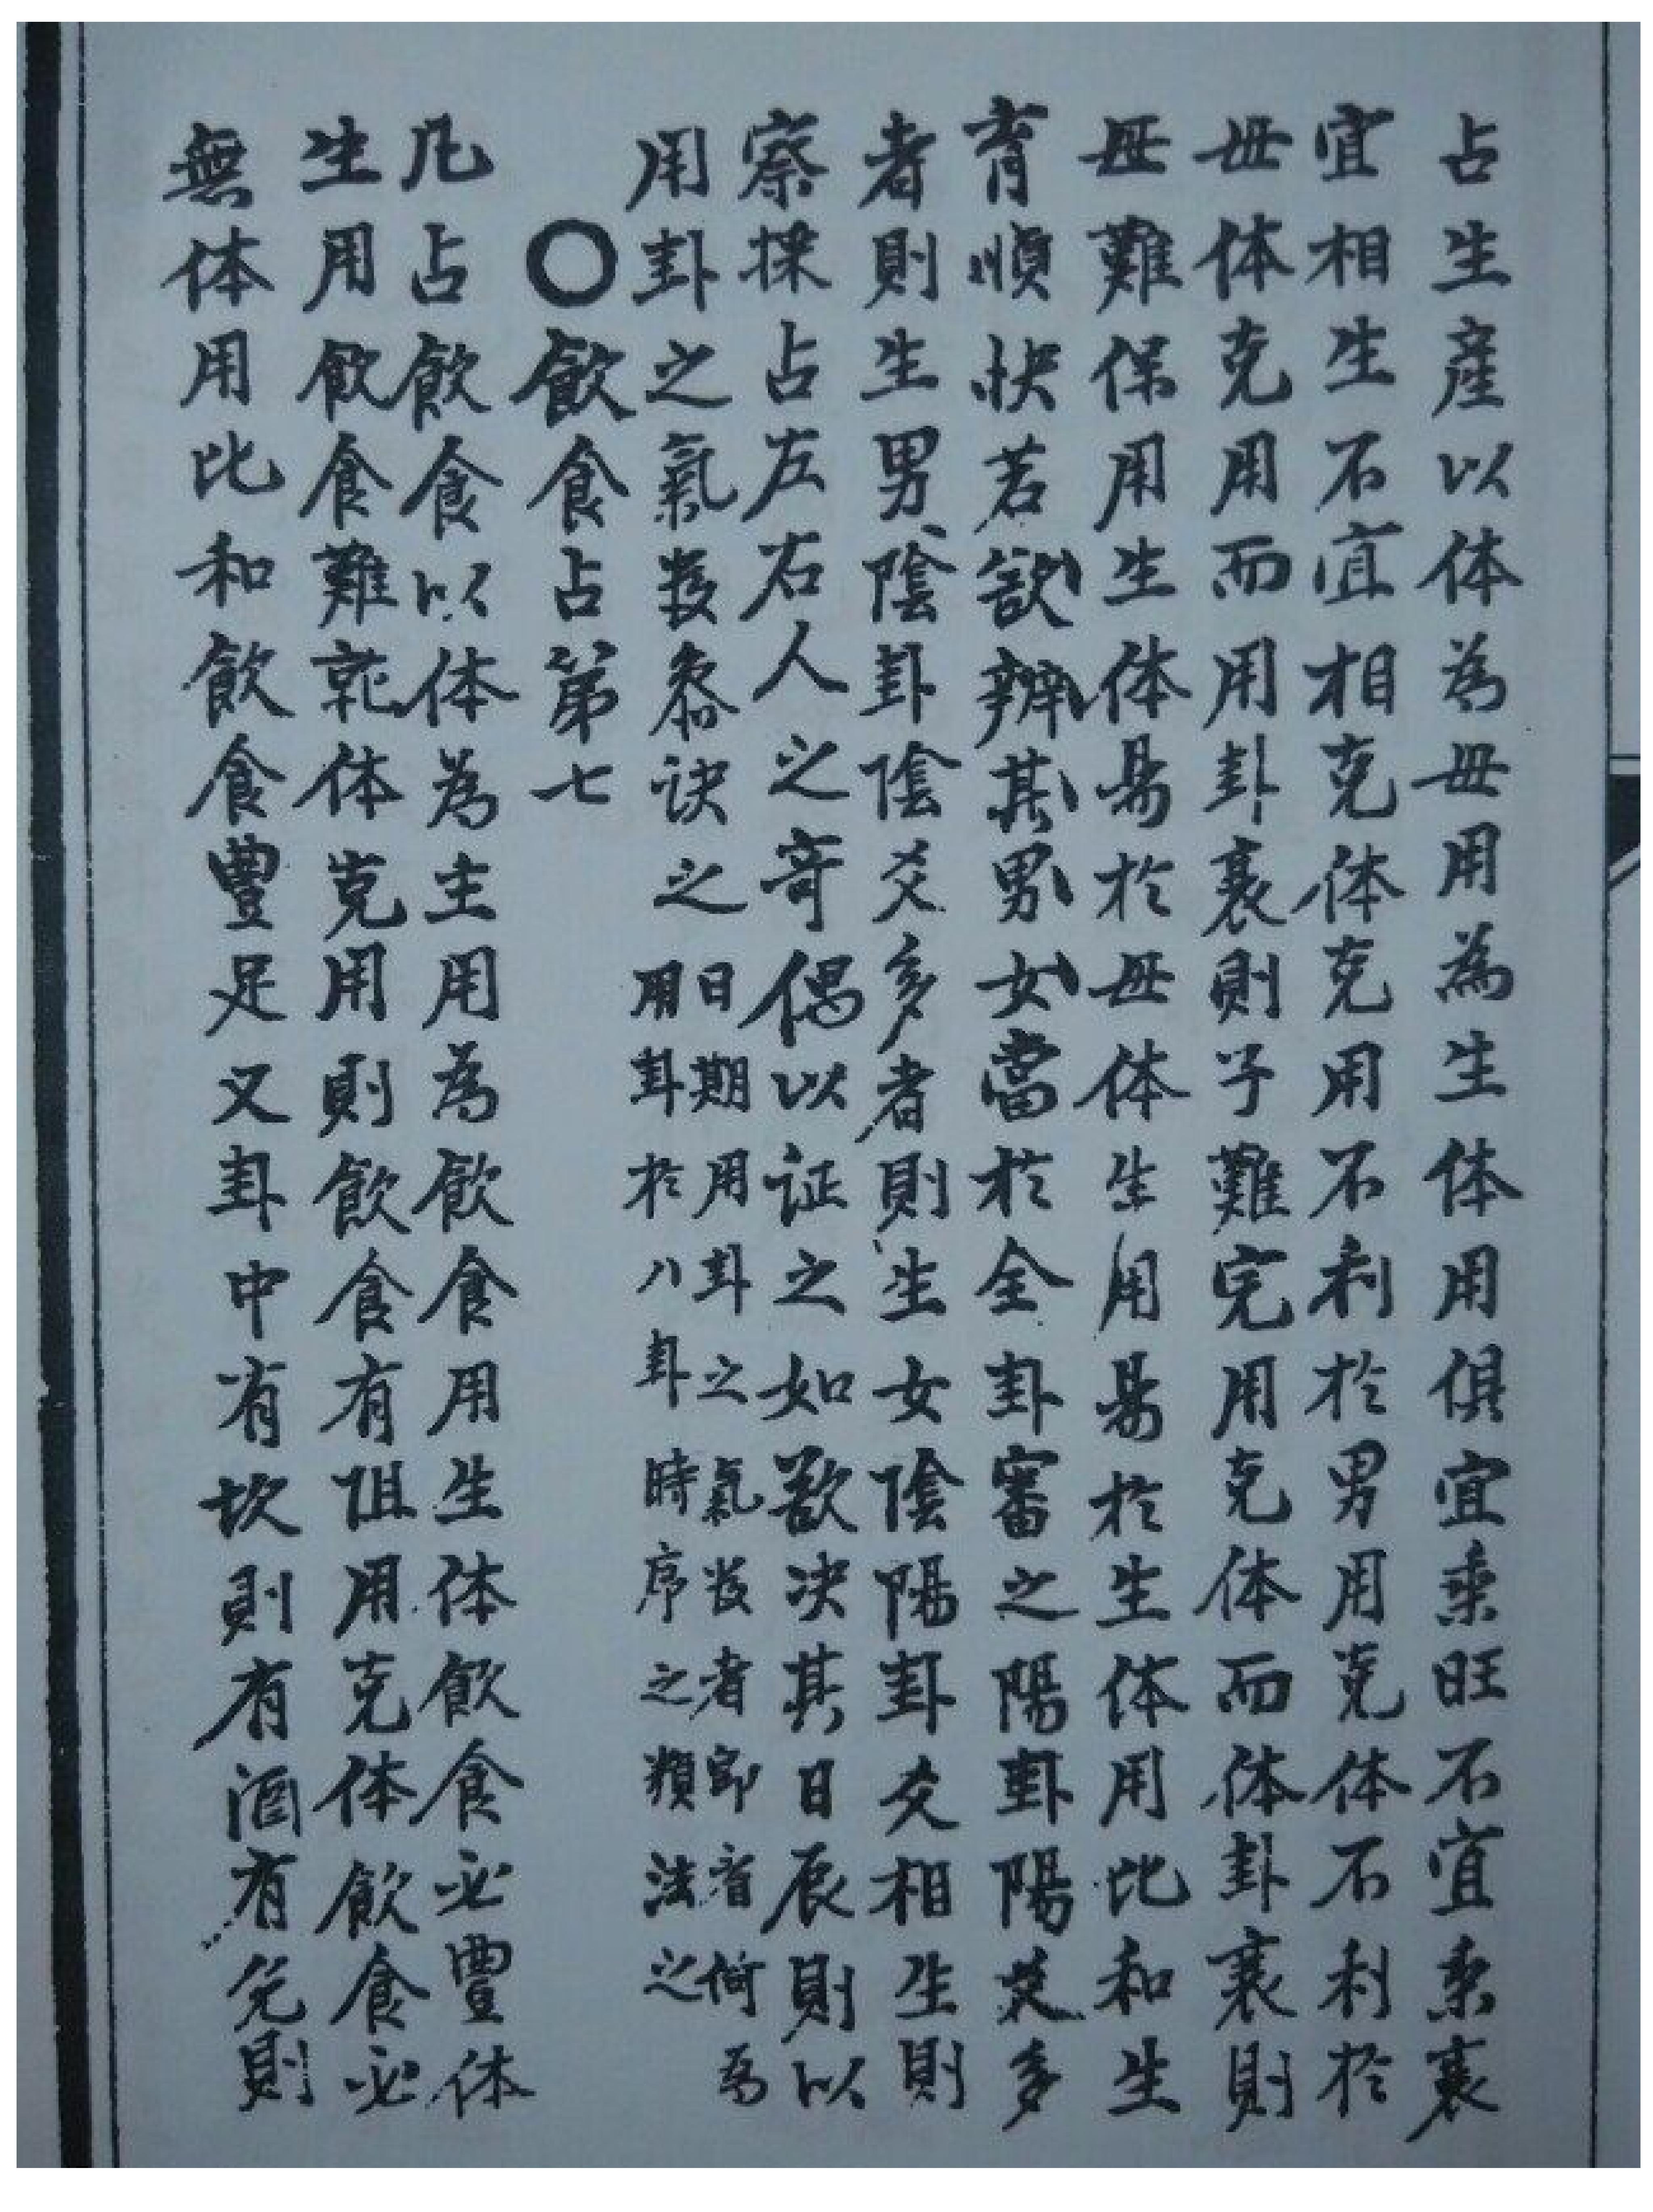 占生產以体為母用為生体用俱宜乘旺不宜乘衰
宜相生不宜相克体克用不利於男用克体不利於
母体克用而用卦衰則子難完用克体而体卦衰則
母難保用生体易於母体生用易於生体用比和生
育順快若欲辨其男女當於全卦審之陽卦陽爻多
者則生男陰卦陰爻多者則生女陰陽卦爻相生則
察採占左右人之奇偶以证之如欲决其日辰則以
用卦之氣数叅诀之
日期用卦之氣数者即省倚為
用卦於八卦時序之類法之
〇飲食占第七
凡占飲食以体為主用為飲食用生体飲食必豐体
生用飲食難乾体克用則飲食有阻用克体飲食必
無体用比和飲食豐足又卦中有坎則有酒有兑則